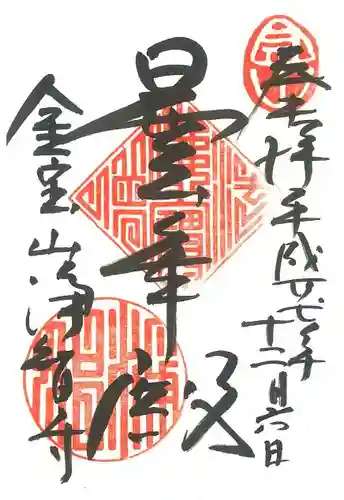 奉拝 平成廿七年
十二月六日
曇華殿
金宝山浄智寺